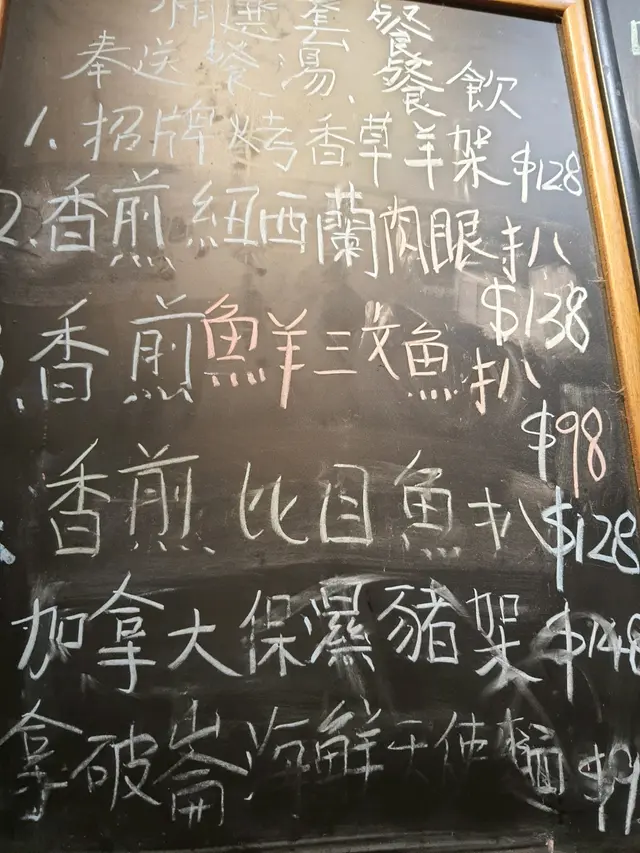 精選套餐
奉送餐湯、餐飲
1、招牌烤香草羊架 $128
2、香煎紐西蘭肉眼扒
$138
香煎魚羊三文魚扒
$98
香煎比目魚扒 $128
加拿大保濕豬架 $148
拿破崙海鮮天使麵 $9